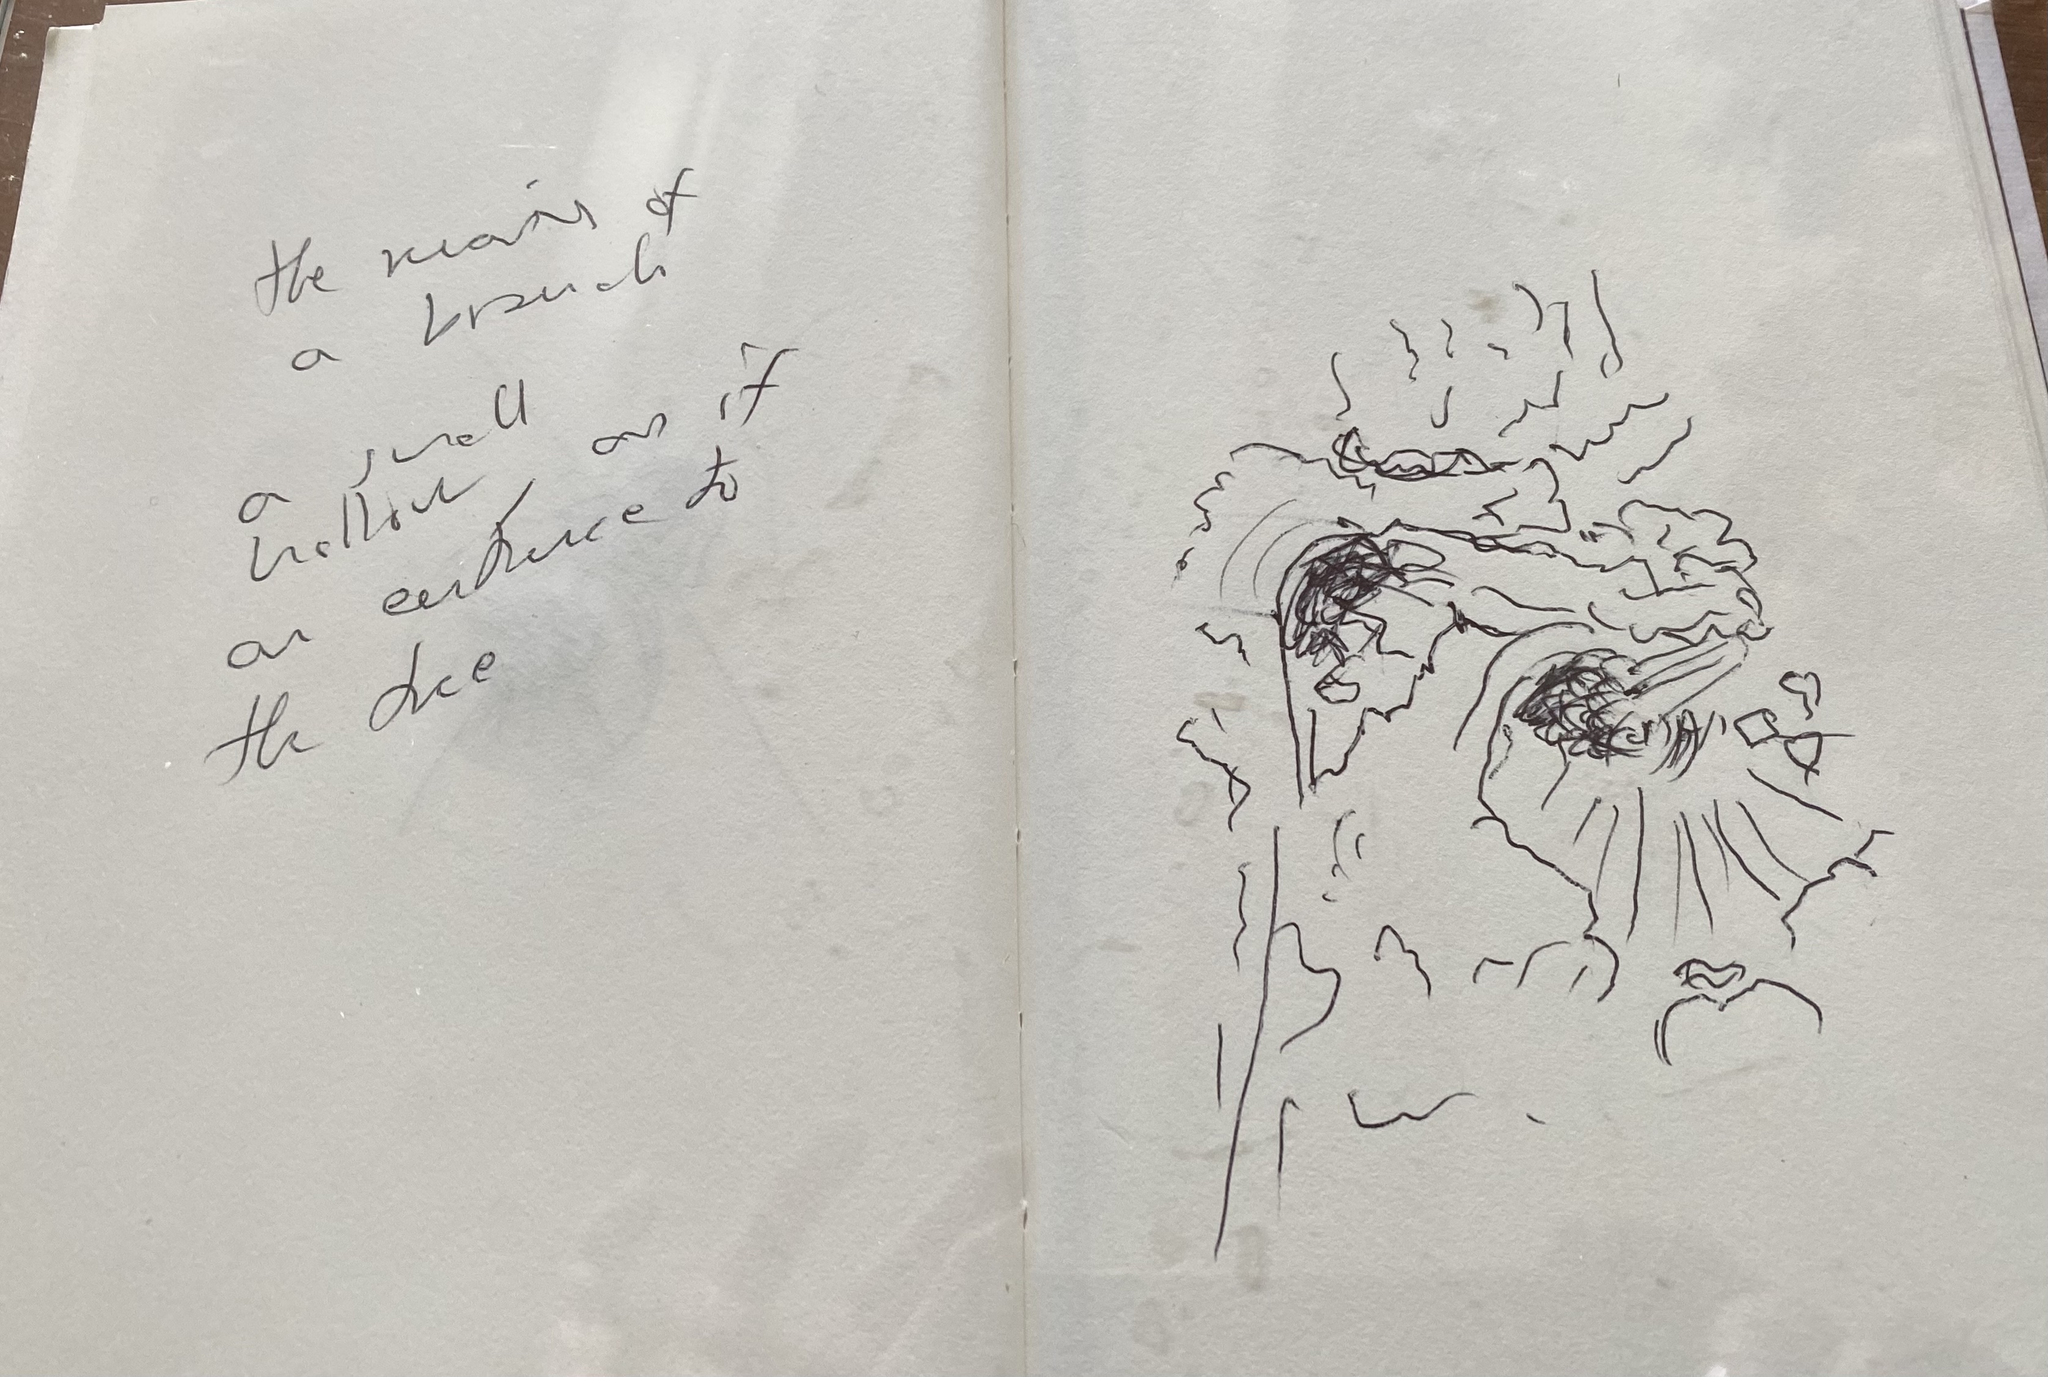 the remains of
a branch
a small
hollow as if
an entrance to
the tree